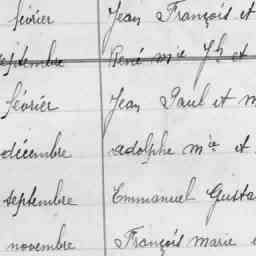 février Jean François et
septembre René mie Jh et
février Jean Paul et m
décembre adolphe mie et
septembre Emmanuel Gusta
novembre François marie